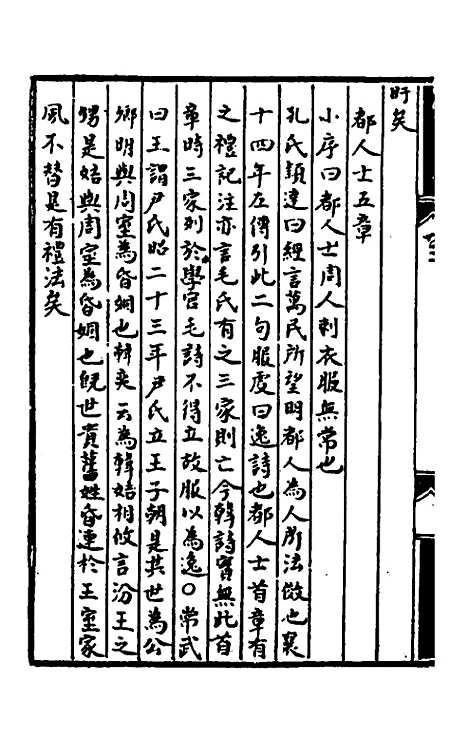 盱矣
都人士五章
小序曰都人士周人刺衣服無常也
孔氏頴達曰經言萬民所望明都人為人所法傚也襄
十四年左傳引此二句服虔曰逸詩也都人士首章有
之禮記注亦言毛氏有之三家則亡今韓詩實無此首
章時三家列於學官毛詩不得立故服以為逸〇常武
曰王謂尹氏昭二十三年尹氏立王子朝是其世為公
卿明與周室為昏姻也韓奕云為韓姞相攸言汾王之
甥是姞與周室為昏姻也旣世貴舊姓昏連於王室家
風不替是有禮法矣